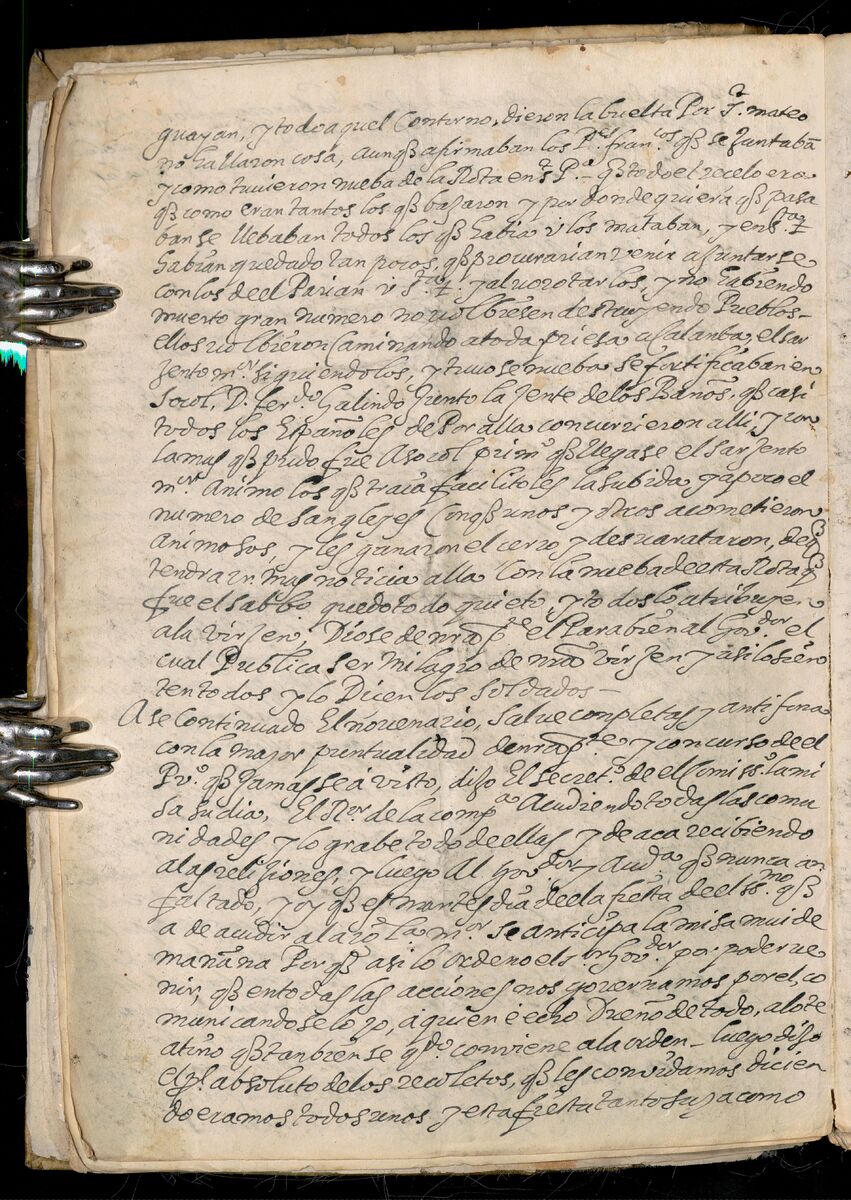 guayan, y todo aquel Contorno, dieron la buelta Por S.t mateo
no hallaron cosa, aunq̃ afirmaban los P.es fran.cos q̃ se Juntabã
y como tuvieron nueba de la Rota en
q̃ como eran tantos los q̃ bajaron y por donde quiera q̃ pasa
ban se llebaban todos los q̃ habia v los mataban, y en
habian quedado tan pocos, q̃ procurarian venir a Juntarse
con los de el Parian v S.ta + y alvorotarlos, y no habiendo
muerto gran numero no volbiesen destruyendo Pueblos-
ellos volbieron Caminando a toda priesa a Calamba, el sar
Jento m.r siguiendolos, y tuvo se nueba se fortificaban en
Socol, D. fer.do Galindo Junto la Jente de los Baños, q̃ casi
todos los Españoles de Por alla concurrieron alli, y con
la mas q̃ pudo fue A socol prim.o q̃ llegase el sarJento
m.r Animo los q̃ traia facilitoles la subida y apoco el
numero de sangleyes Conq̃ unos y otros acometieron
Animosos, y les ganaron el cerro y desvarataron, de q̃
tendra vn mas noticia alla Con la nueba de esta Rota q̃
fue el sabbo quedo todo quieto, y todos lo atribuyen
ala virJen, Diose de nra p.te el Parabien al Gov.dor el
cual Publica ser Milagro de nrã virJen y asi lo sien
ten todos y lo Dicen los Soldados-
A se Continuado El novenario, Salve completas y antifona
con la mayor puntualidad de nra p.te y concurso de el
Pu.o q̃ Jamas se á visto, dijo El secret.o de el Comiss.o la mi
sa su dia, El R.or de la comp.a Acudiendo todas las comu
nidades y lo grabe todo de ellas y de aca recibiendo
alas relijiones, y luego Al Gov.dor y Aud.a q̃ nunca an
faltado, y oy q̃ es martes dia de ela fiesta de el SS.mo q̃
a de acudir ala la m.or se anticipa la misa mui de
mañana Por q̃ asi lo ordeno el s.r Gov.dor por poder ve
nir, q̃ en todas las acciones nos governamos por el, co
municandoselo yo, a quien é echo Dueño de todo, alo te
atino q̃ tanbien se q.do conviene ala orden- luego dijo
el p.e absoluto de los recoletos, q̃ les convidamos dicien
do eramos todos unos, y esta fiesta tanto suya como